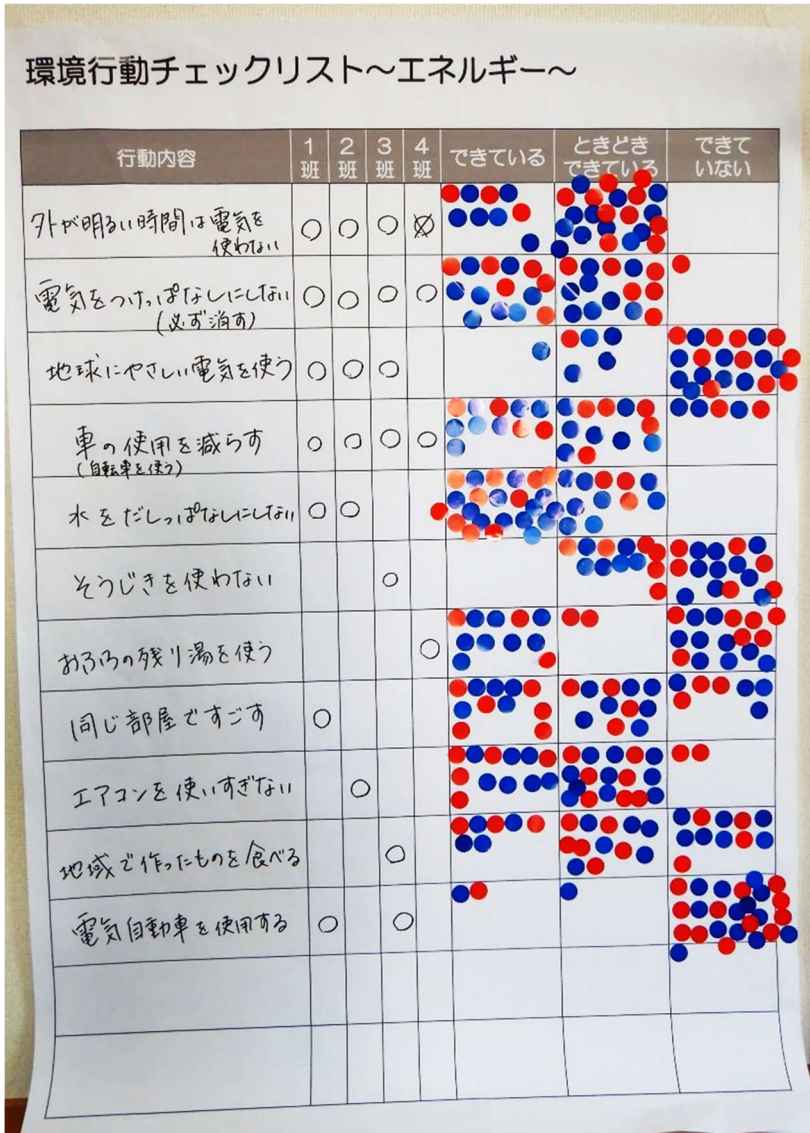 環境行動チェックリスト～エネルギー～
行動内容 1班 2班 3班 4班 できている ときどきできている できていない
外が明るい時間は電気を
使わない ○ ○ ○ ○
電気をつけっぱなしにしない ○ ○ ○ ○
(必ず消す)
地球にやさしい電気を使う ○ ○ ○
車の使用を減らす ○ ○ ○ ○
(自転車を使う)
水をだしっぱなしにしない ○ ○
そうじきを使わない ○
おふろの残り湯を使う ○
同じ部屋ですごす ○
エアコンを使いすぎない ○
地域で作ったものを食べる ○
電気自動車を使用する ○ ○